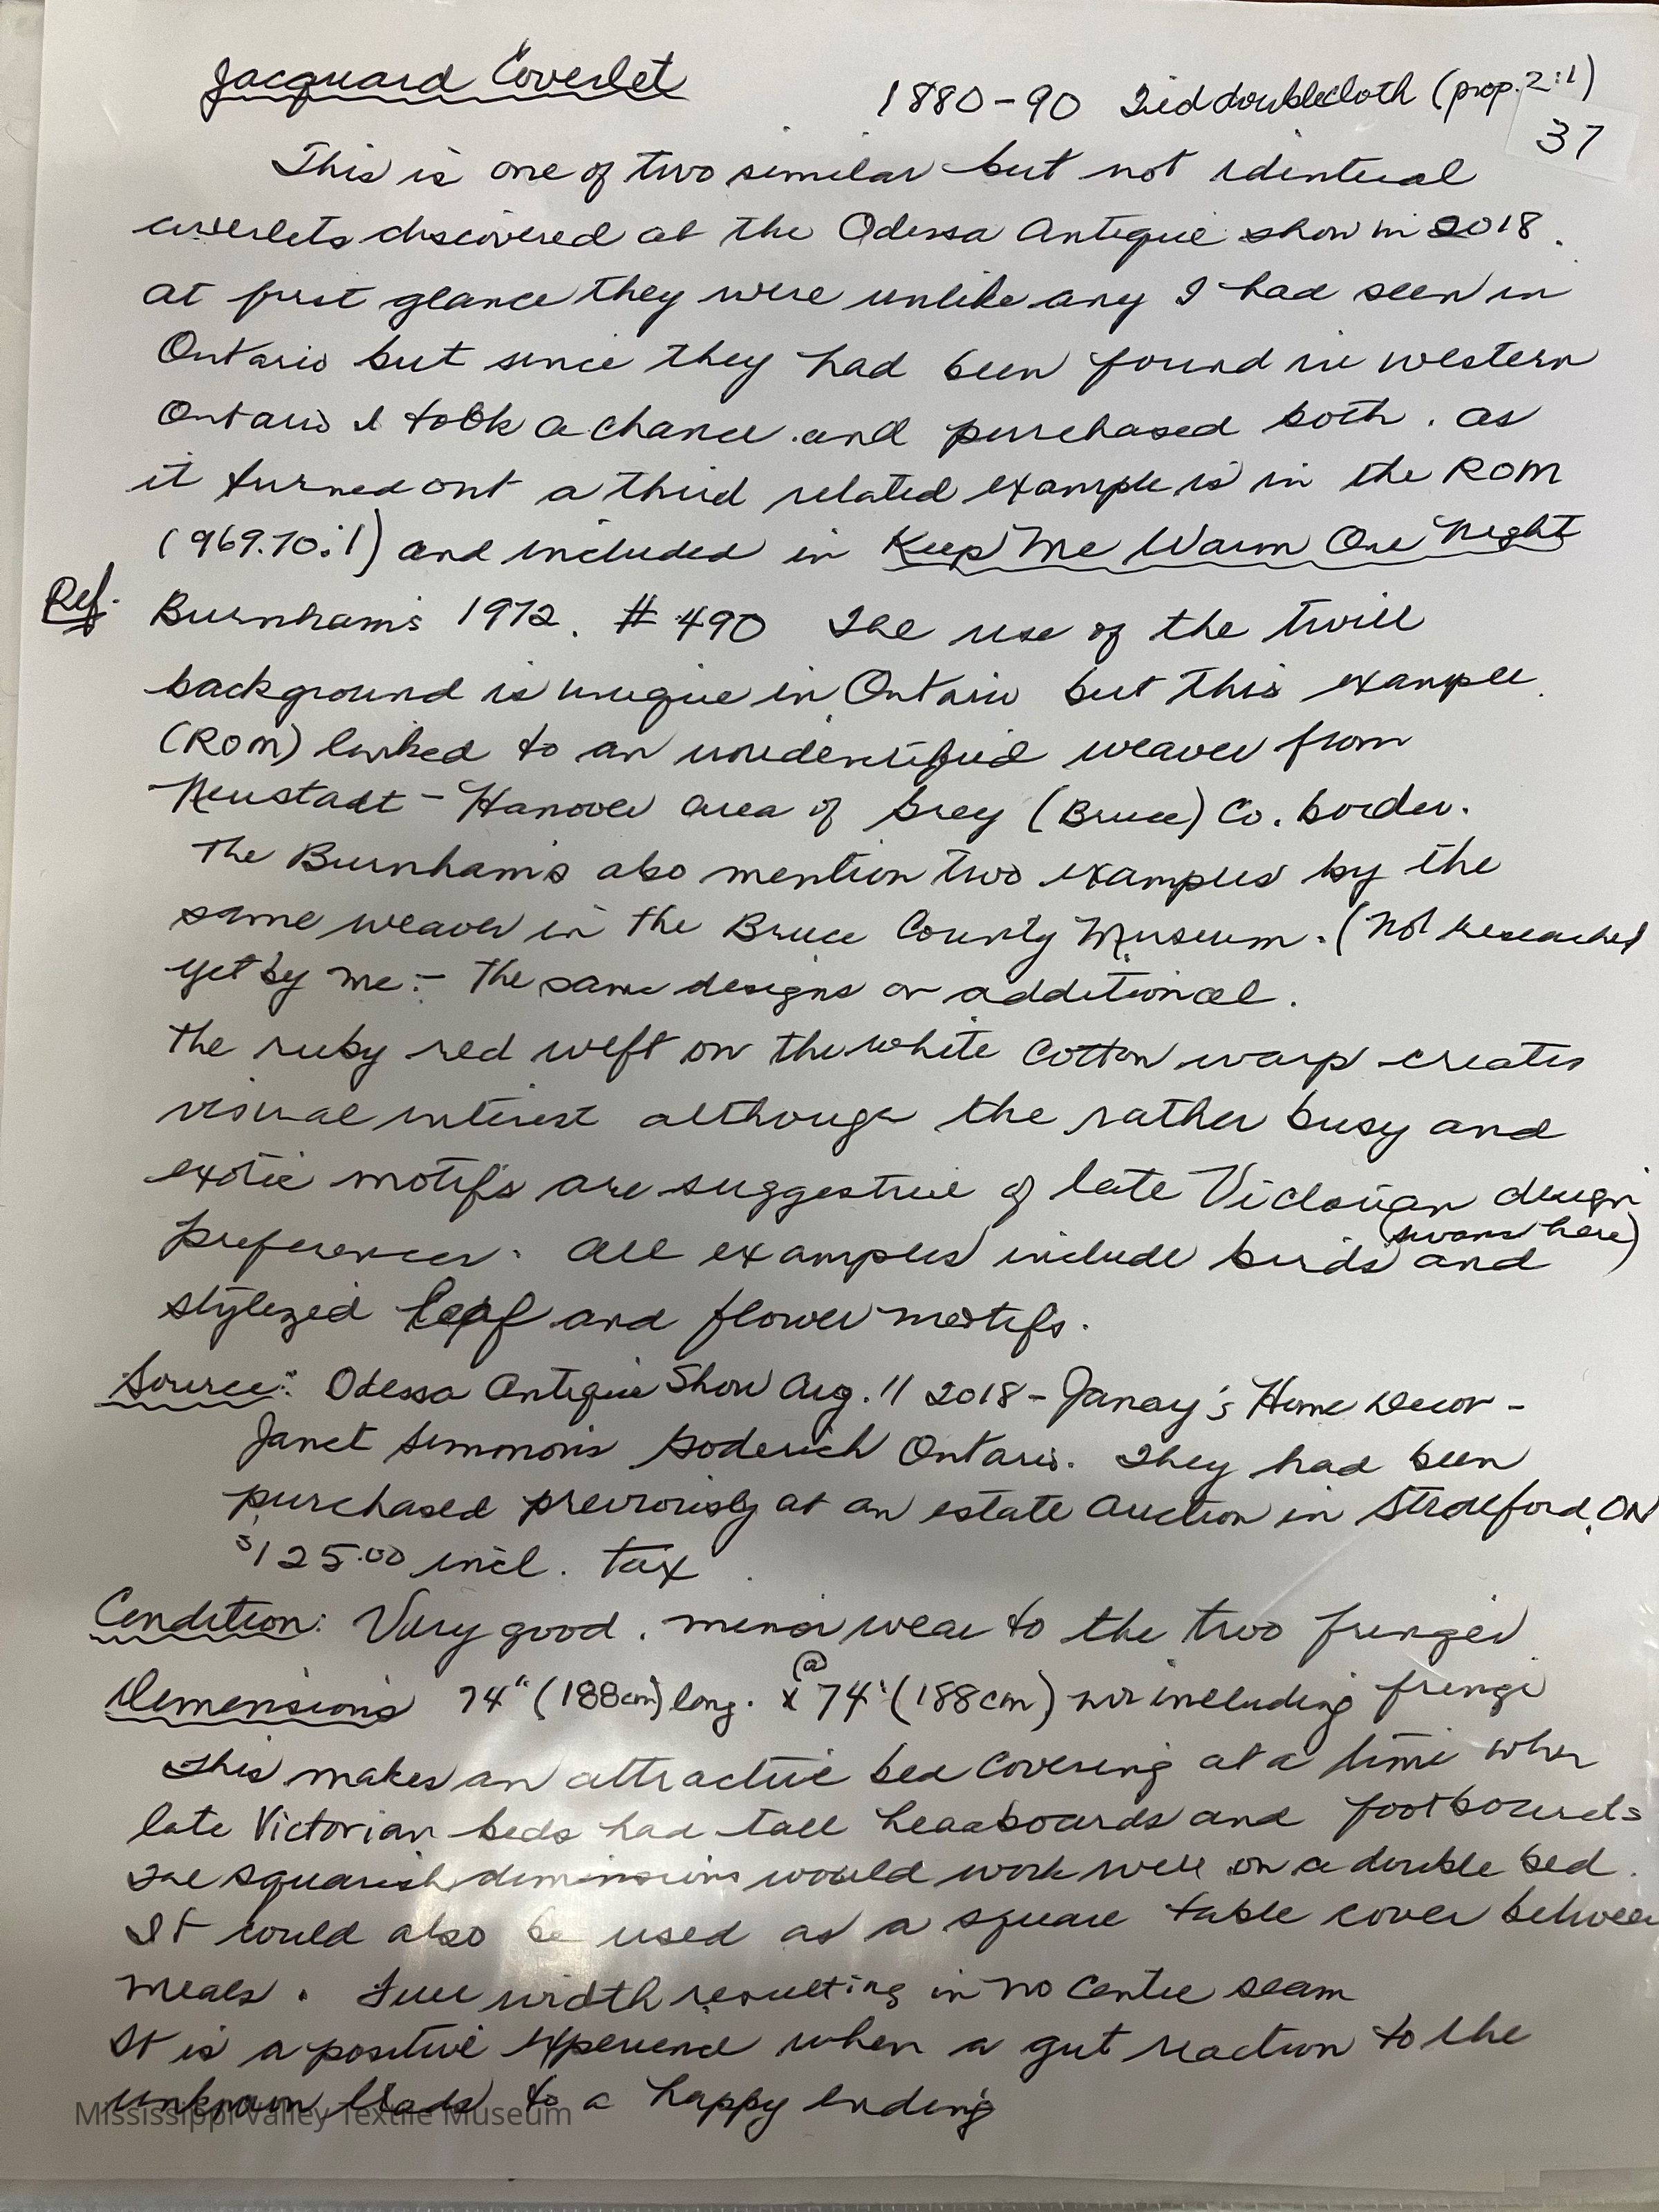 Jacquard Coverlet
1880-90 Tied doublecloth (prop. 2:1)
37
This is one of two similar but not identical
coverlets discovered at the Odessa Antique show in 2018.
At first glance they were unlike any I had seen in
Ontario but since they had been found in western
Ontario I took a chance and purchased both. As
it turned out a third related example is in the ROM
(969.70.1) and included in Keep Me Warm One Night
Ref. Burnham's 1972. #490 The use of the twill
background is unique in Ontario but this example
(ROM) linked to an unidentified weaver from
Neustadt - Hanover area of Grey (Bruce) Co. border.
The Burnham's also mention two examples by the
same weaver in the Bruce County Museum. (Not researched
yet by me - The same designs or additional.
The ruby red weft on the white cotton warp creates
visual interest although the rather busy and
exotic motifs are suggestive of late Victorian design
preferences. All examples include birds (swans here) and
stylized leaf and flower motifs.
Source: Odessa Antique Show Aug. 11 2018 - Janay's Home Decor -
Janet Simmons Goderich Ontario. They had been
purchased previously at an estate auction in Stratford, ON
$125.00 incl. tax
Condition: Very good. minor wear to the two fringes
Dimensions 74" (188cm) long. x @ 74" (188cm) not including fringe
This makes an attractive bed covering at a time when
late Victorian beds had tall headboards and footboards
The squarish dimensions would work well on a double bed.
It could also be used as a square table cover between
meals. Full width resulting in no centre seam
It is a positive experience when a gut reaction to the
unknown leads to a happy ending
Mississippi Valley Textile Museum